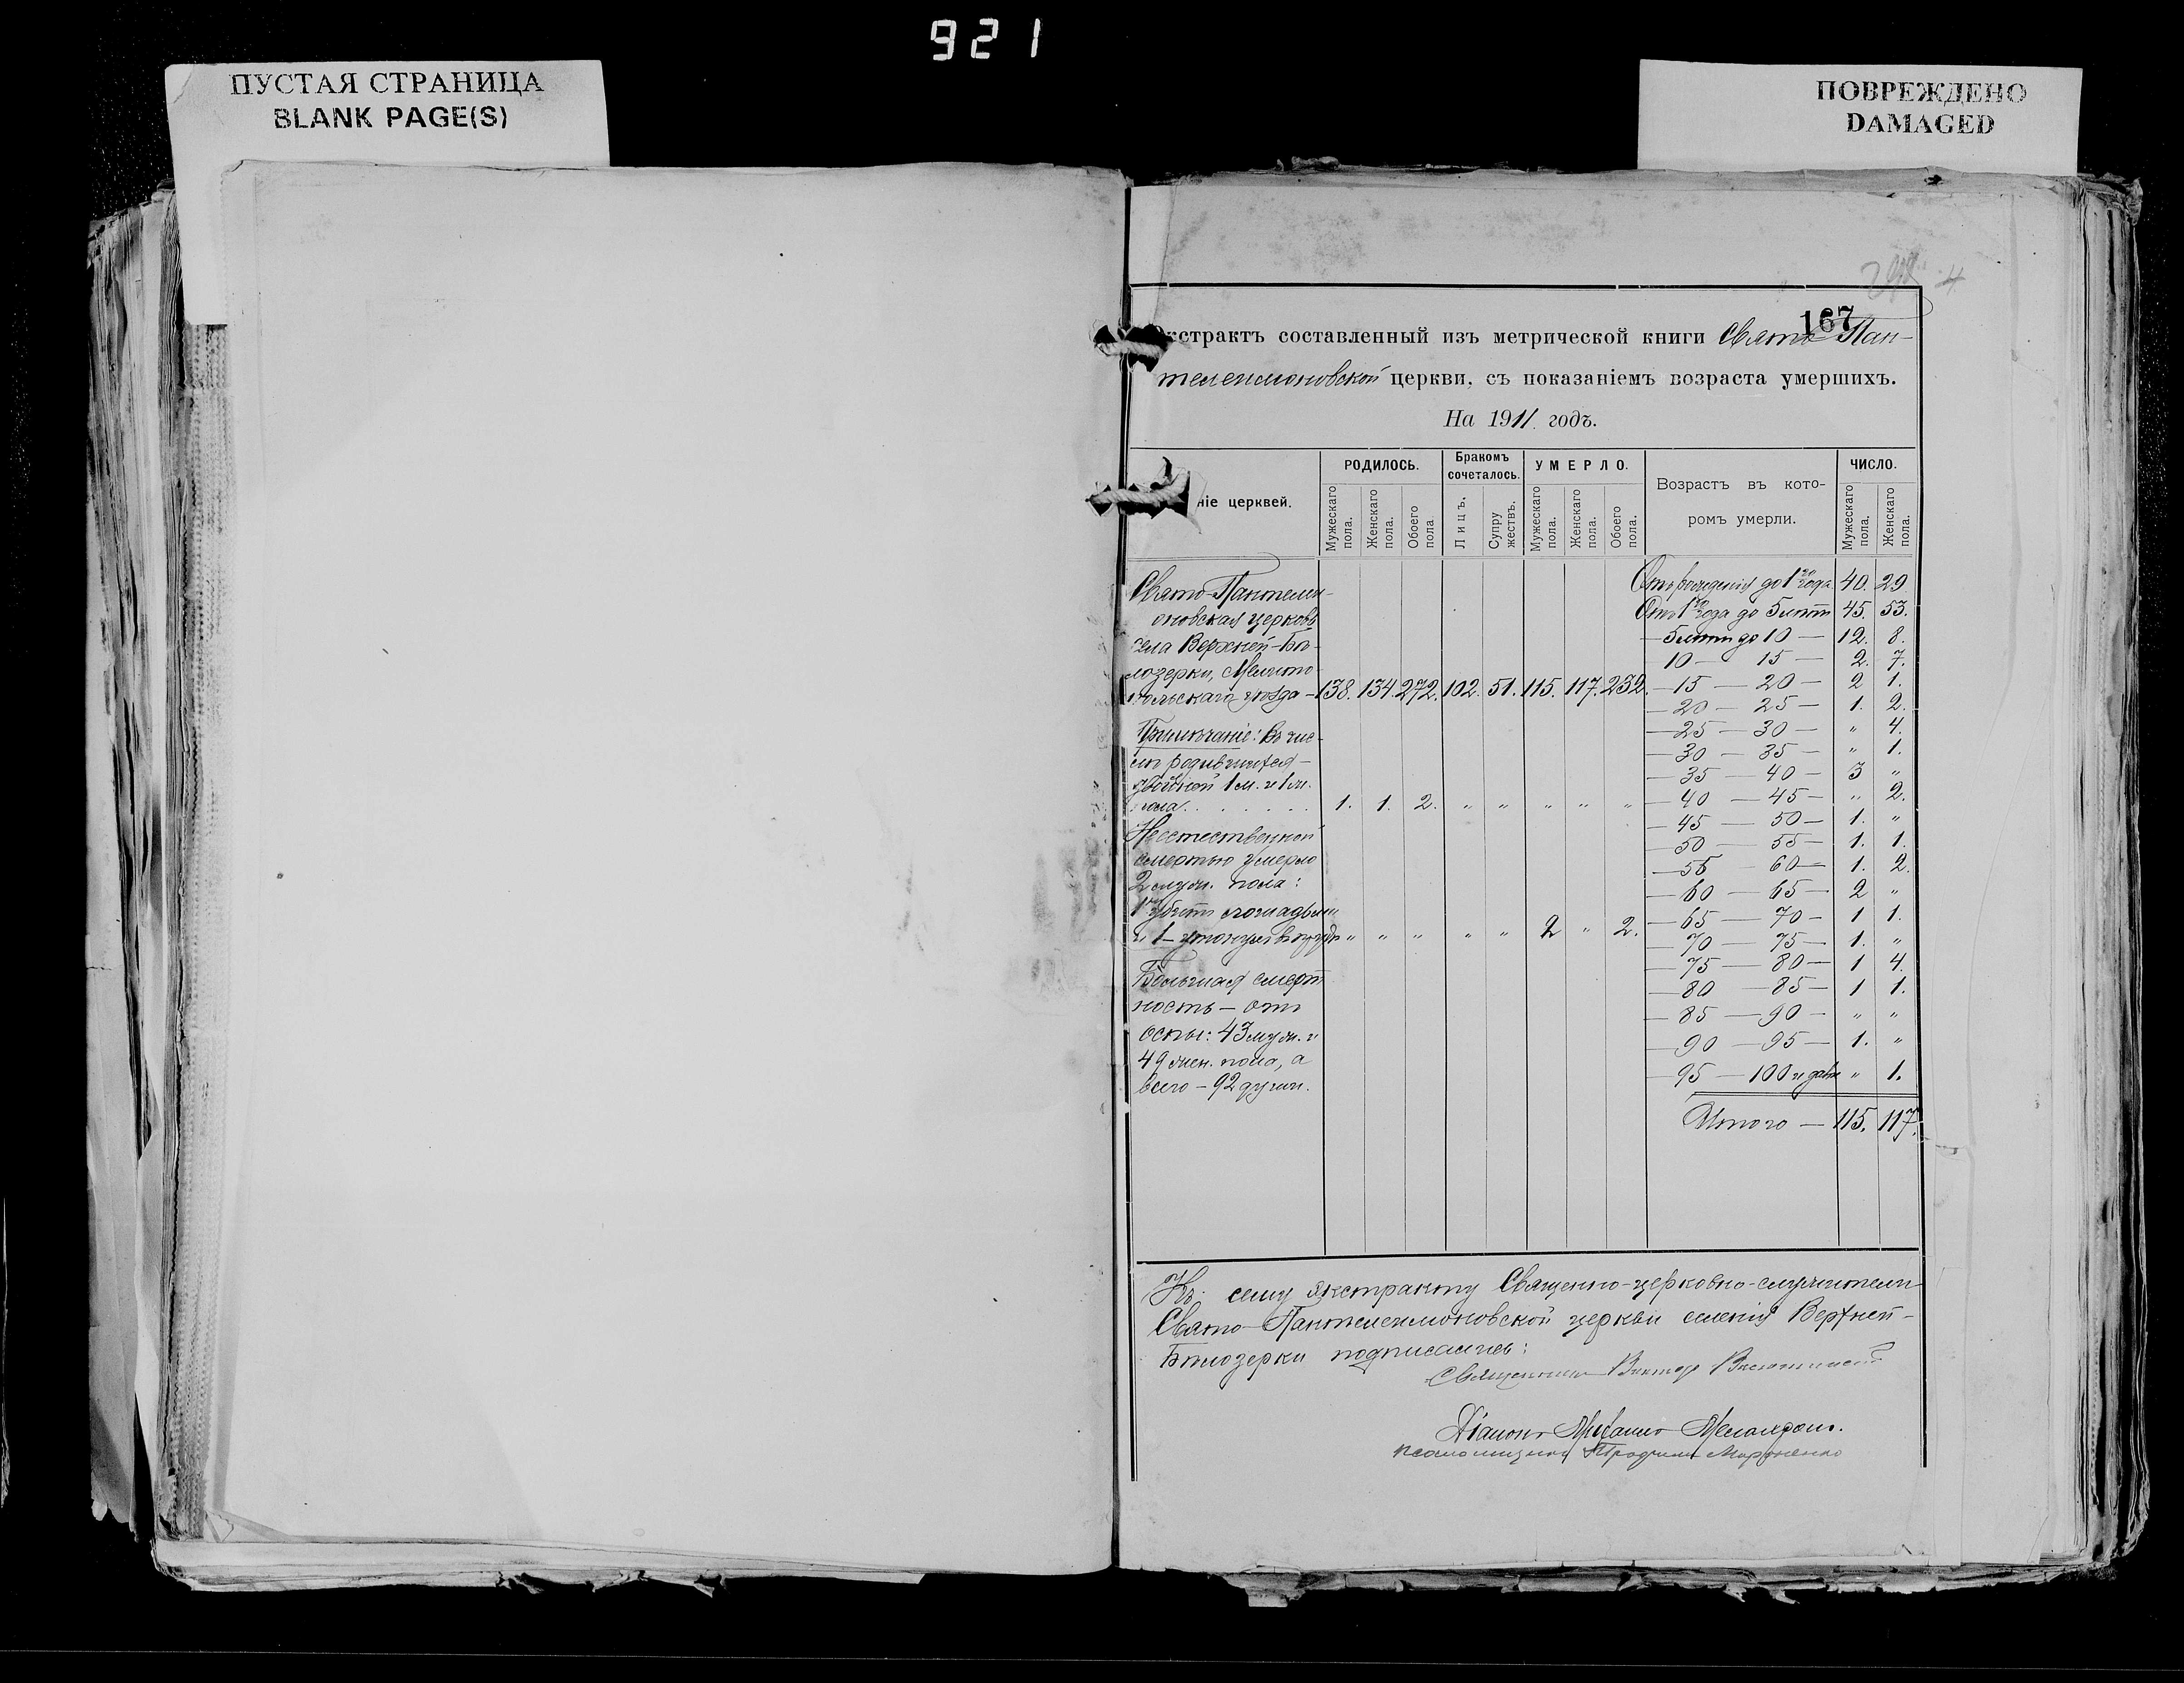 921
ПУСТАЯ СТРАНИЦА
BLANK PAGE(S)
ПОВРЕЖДЕНО
DAMAGED
4
167
кстрактъ составленный изъ метрической книги Свято-Пан-
телеимоновской церкви, съ показаніемъ возраста умершихъ.
На 1911 годъ.
ніе церквей.
РОДИЛОСЬ.
Бракомъ сочеталось.
УМЕРЛО.
Возрастъ въ кото-
ромъ умерли.
ЧИСЛО.
Мужескаго пола. Женскаго пола. Обоего пола. Лицъ. Супружествъ. Мужескаго пола. Женскаго пола. Обоего пола. Мужескаго пола. Женскаго пола.
Свято-Пантелеи-
моновская церковь
села Верхней-Бѣ-
лозерки, Мелито-
польскаго уѣзда - 138. 134. 272. 102. 51. 115. 117. 232.
Примѣчаніе: Въ чис-
лѣ родившихся -
двойней 1 м. и 1 ж.
пола . . . . . . 1. 1. 2. " " " " "
Неестественной
смертью умерло
2 муж. пола:
1 убитъ лошадьми
и 1 - утонулъ въ " " " " " 2 " 2.
Большая смерт
ность - отъ
оспы: 43 муж. и
49 жен. пола, а
всего - 92 души.
Отъ рожденія до 1го года 40. 29
Отъ 1го года до 5 лѣтъ 45. 53.
- 5 лѣтъ до 10 - 12. 8.
- 10 - 15 - 2. 7.
- 15 - 20 - 2 1.
- 20 - 25 - 1. 2.
- 25 - 30 - " 4.
- 30 - 35 - " 1.
- 35 - 40 - 3 "
- 40 - 45 - " 2.
- 45 - 50 - 1. "
- 50 - 55 - 1. 1.
- 55 - 60 - 1. 2.
- 60 - 65 - 2 "
- 65 - 70 - 1 1.
- 70 - 75 - 1. "
- 75 - 80 - 1 4.
- 80 - 85 - 1 1.
- 85 - 90 - " "
- 90 - 95 - 1. "
- 95 - 100 и далѣе " 1.
Итого - 115. 117.
Къ сему экстракту Священно-церковно-служители
Свято-Пантелеимоновской церкви селенія Верхней-
Бѣлозерки подписались:
Священникъ Викторъ
Діаконъ Михаилъ
Псаломщикъ Марченко